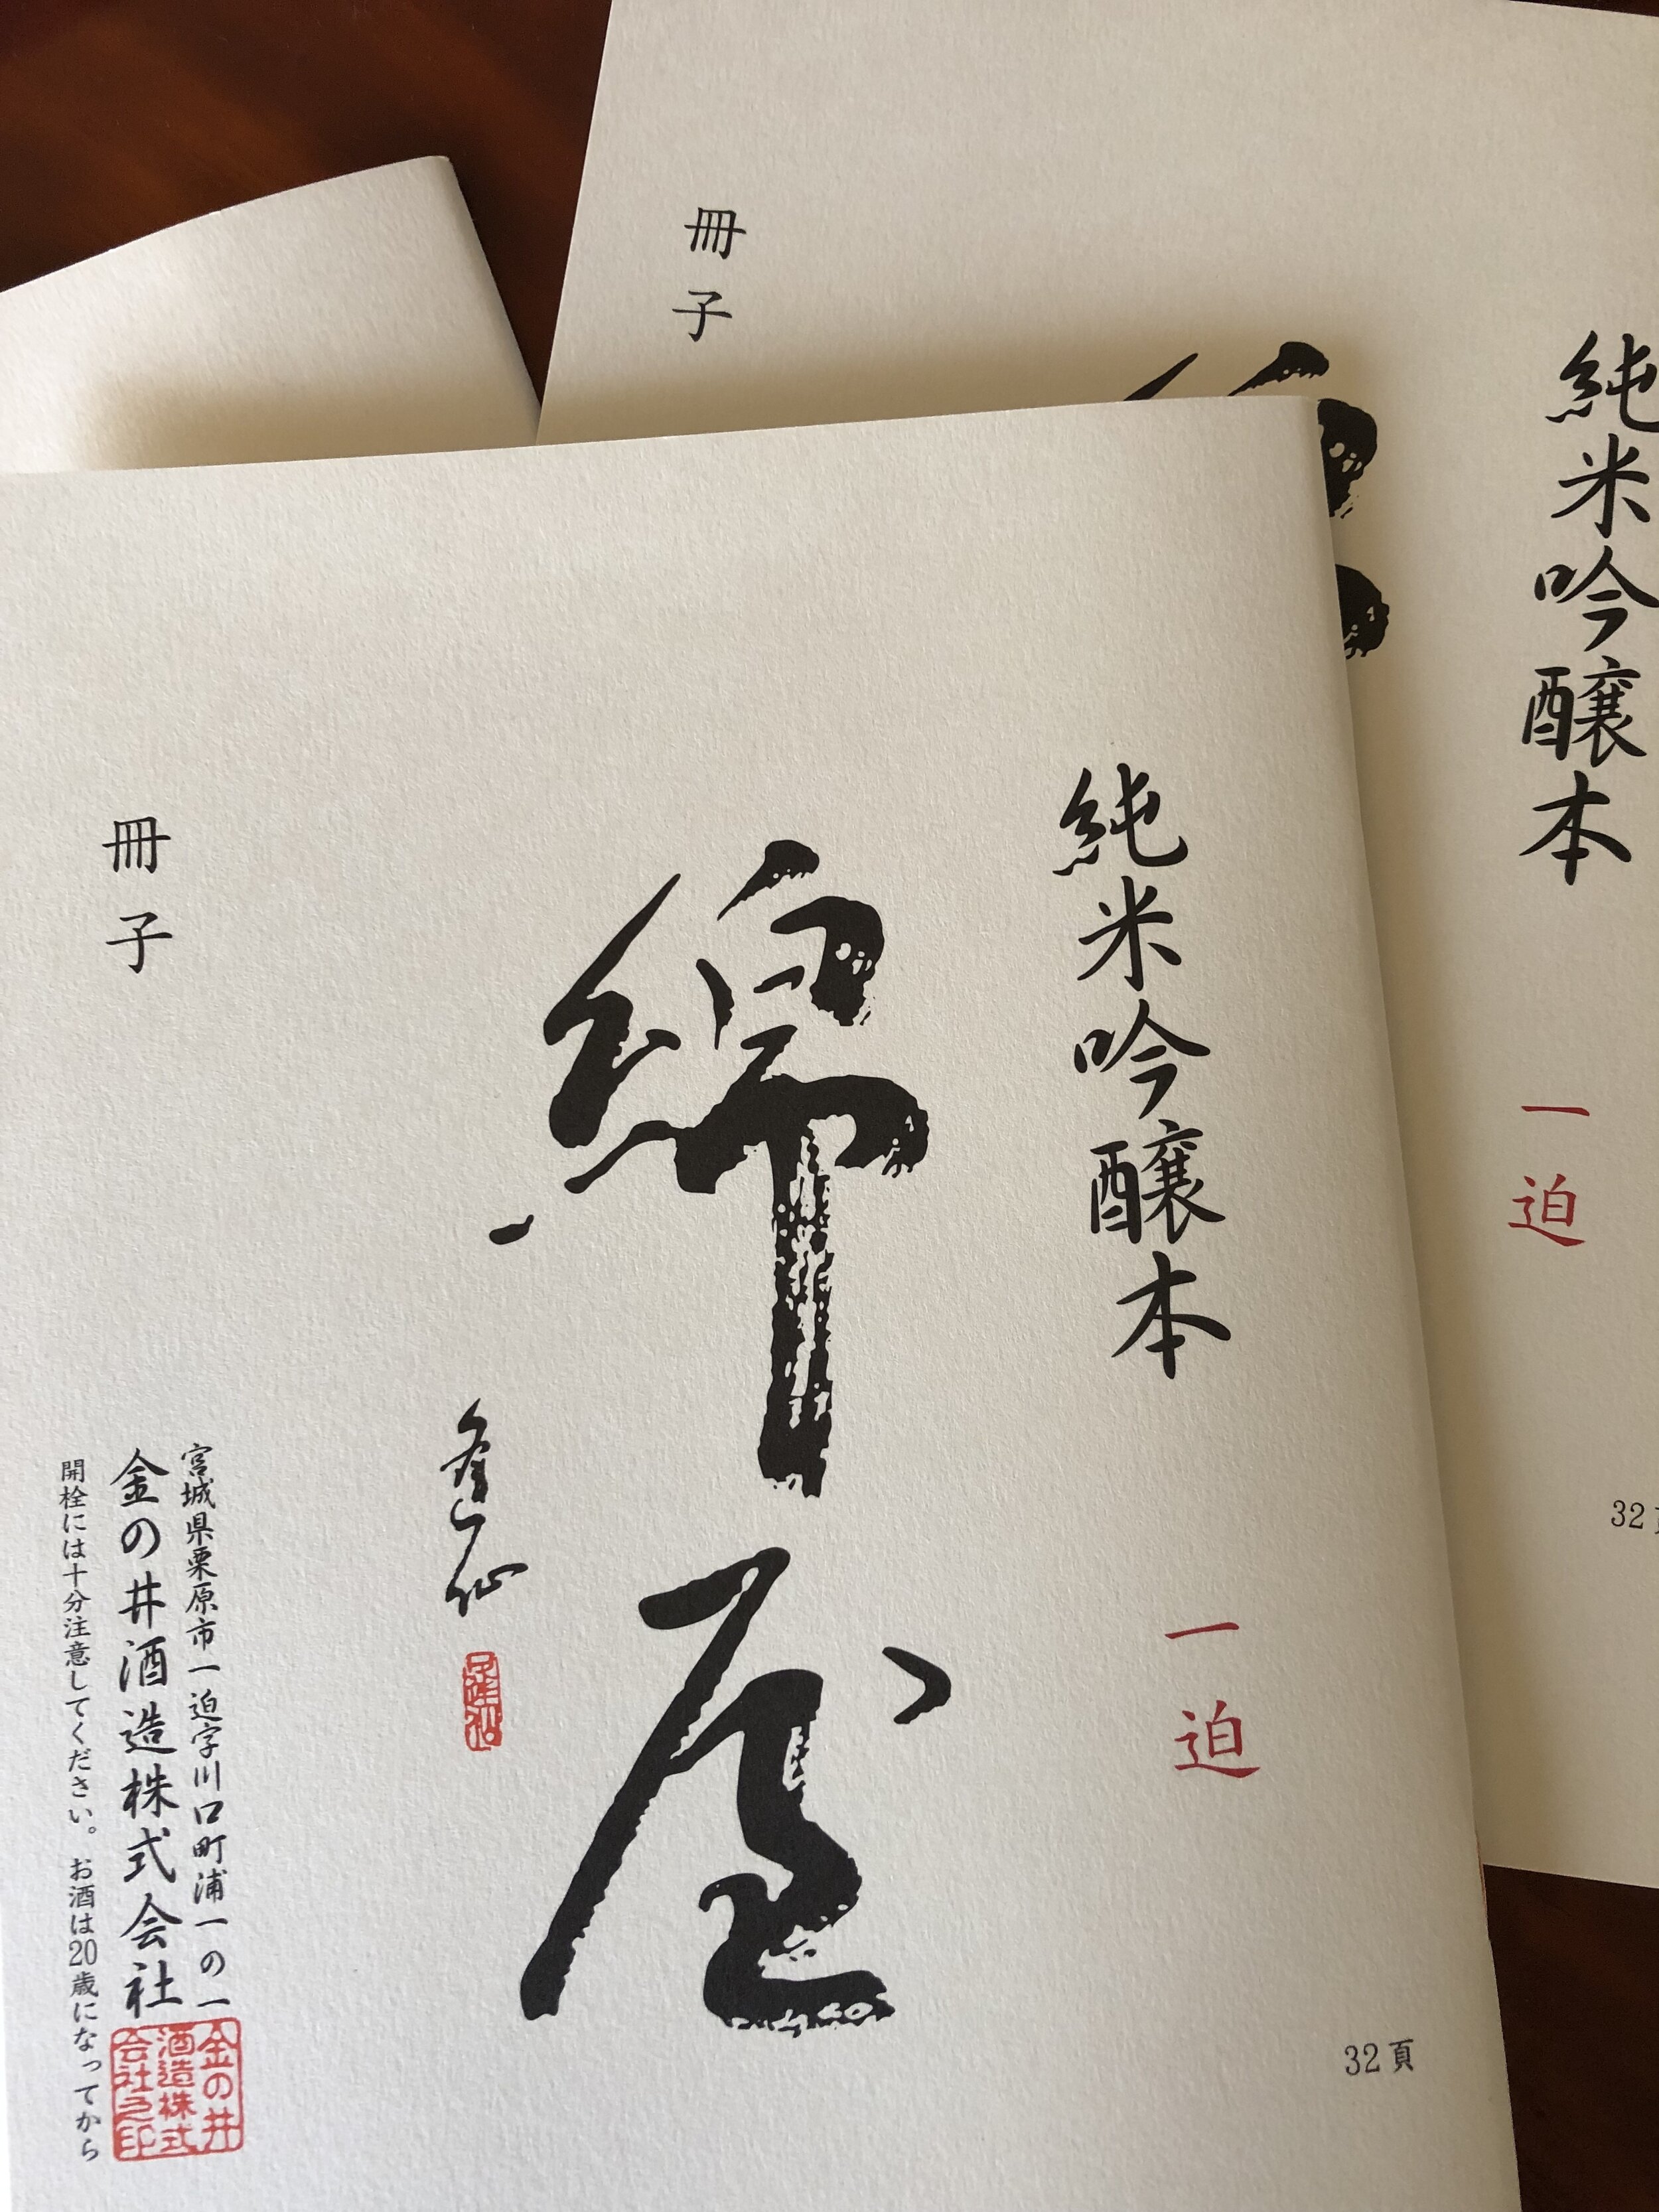 純米吟醸本
一迫
32頁
綿屋
冊子
宮城県栗原市一迫字川口町浦一の一
金の井酒造株式会社
金の井酒造株式会社之印
開栓には十分注意してください。お酒は20歳になってから
純米吟醸本
一迫
32
冊子